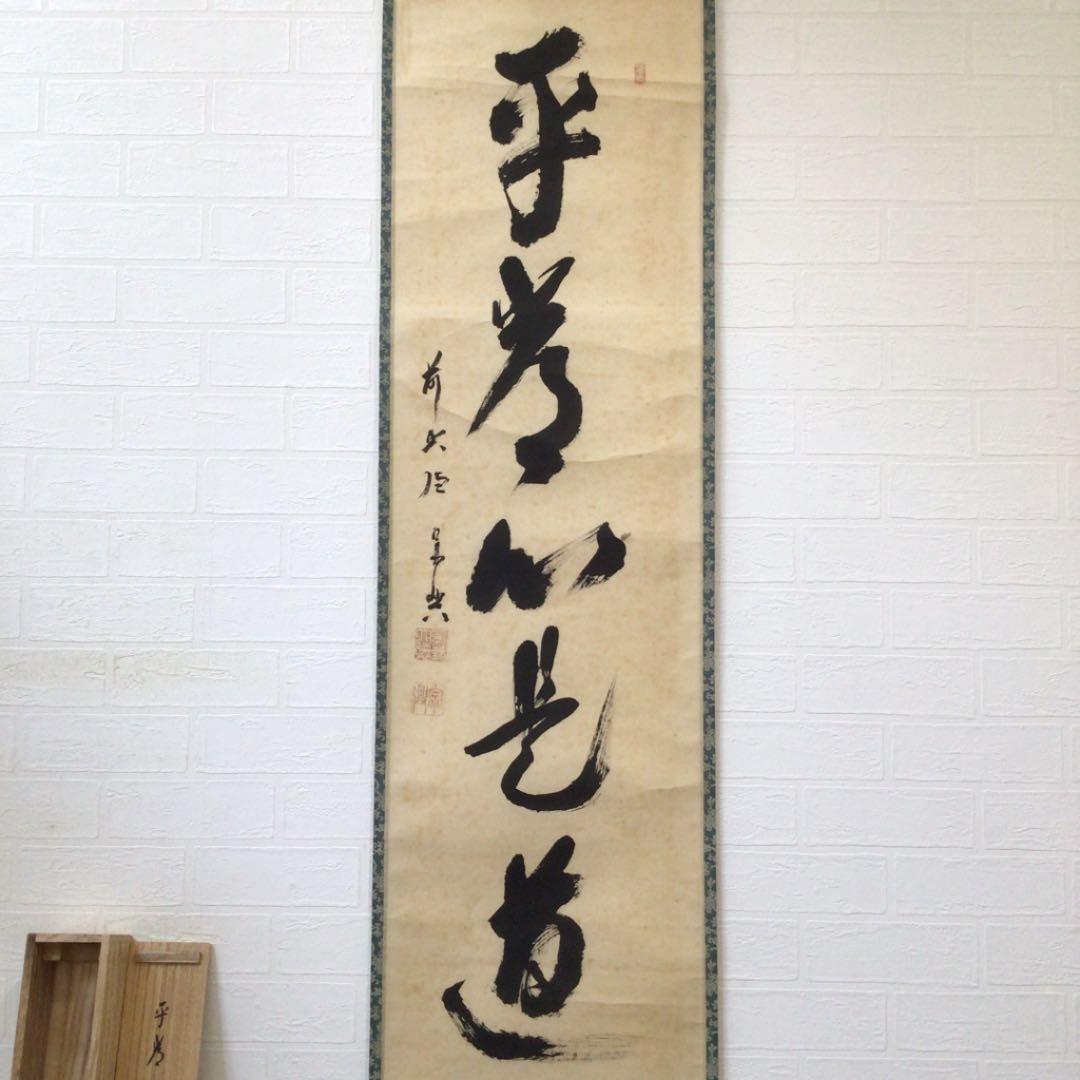 平常心是道
前大徳
平常